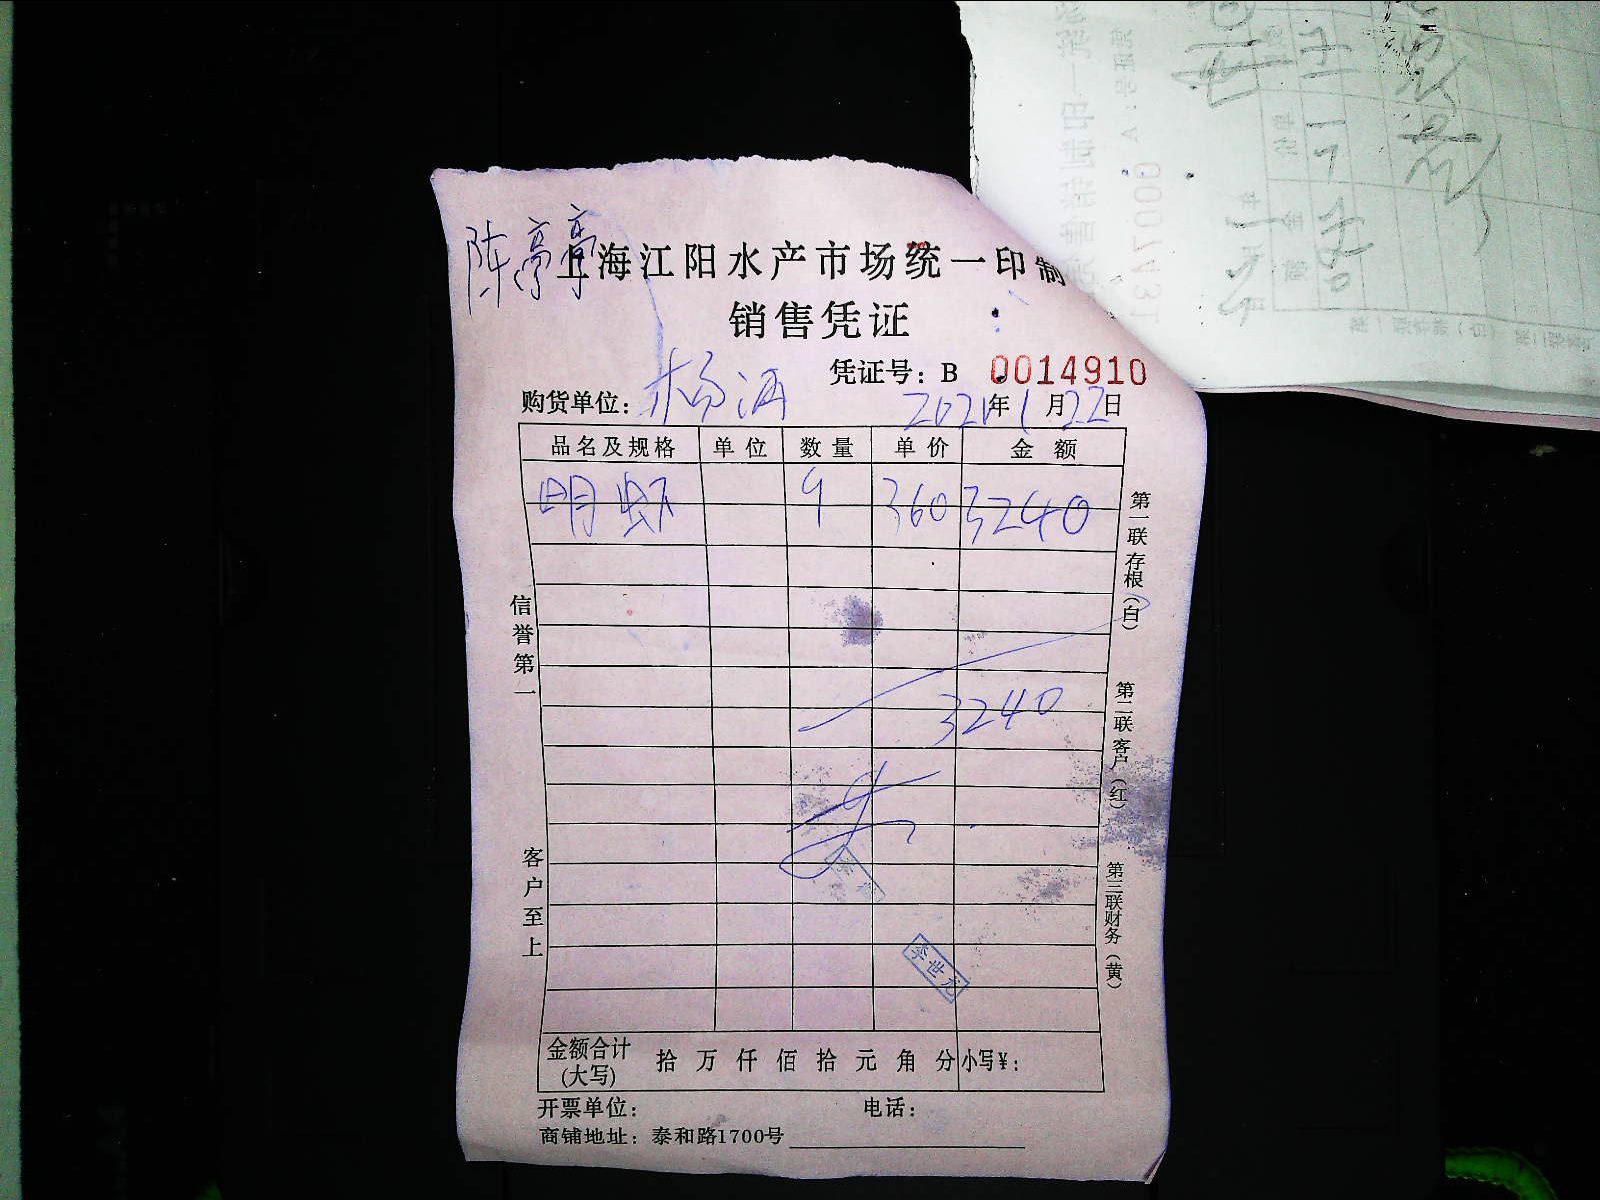 陈亭亭
上海江阳水产市场统一印制
销售凭证
凭证号：B 0014910
购货单位：杨洒 2021年1月22日
品名及规格 单位 数量 单价 金额
明虾 9 360 3240
3240
信誉第一
客户至上
第一联存根（白）
第二联客户（红）
第三联财务（黄）
李世元
金额合计（大写） 拾 万 仟 佰 拾 元 角 分 小写￥：
开票单位： 电话：
商铺地址：泰和路1700号